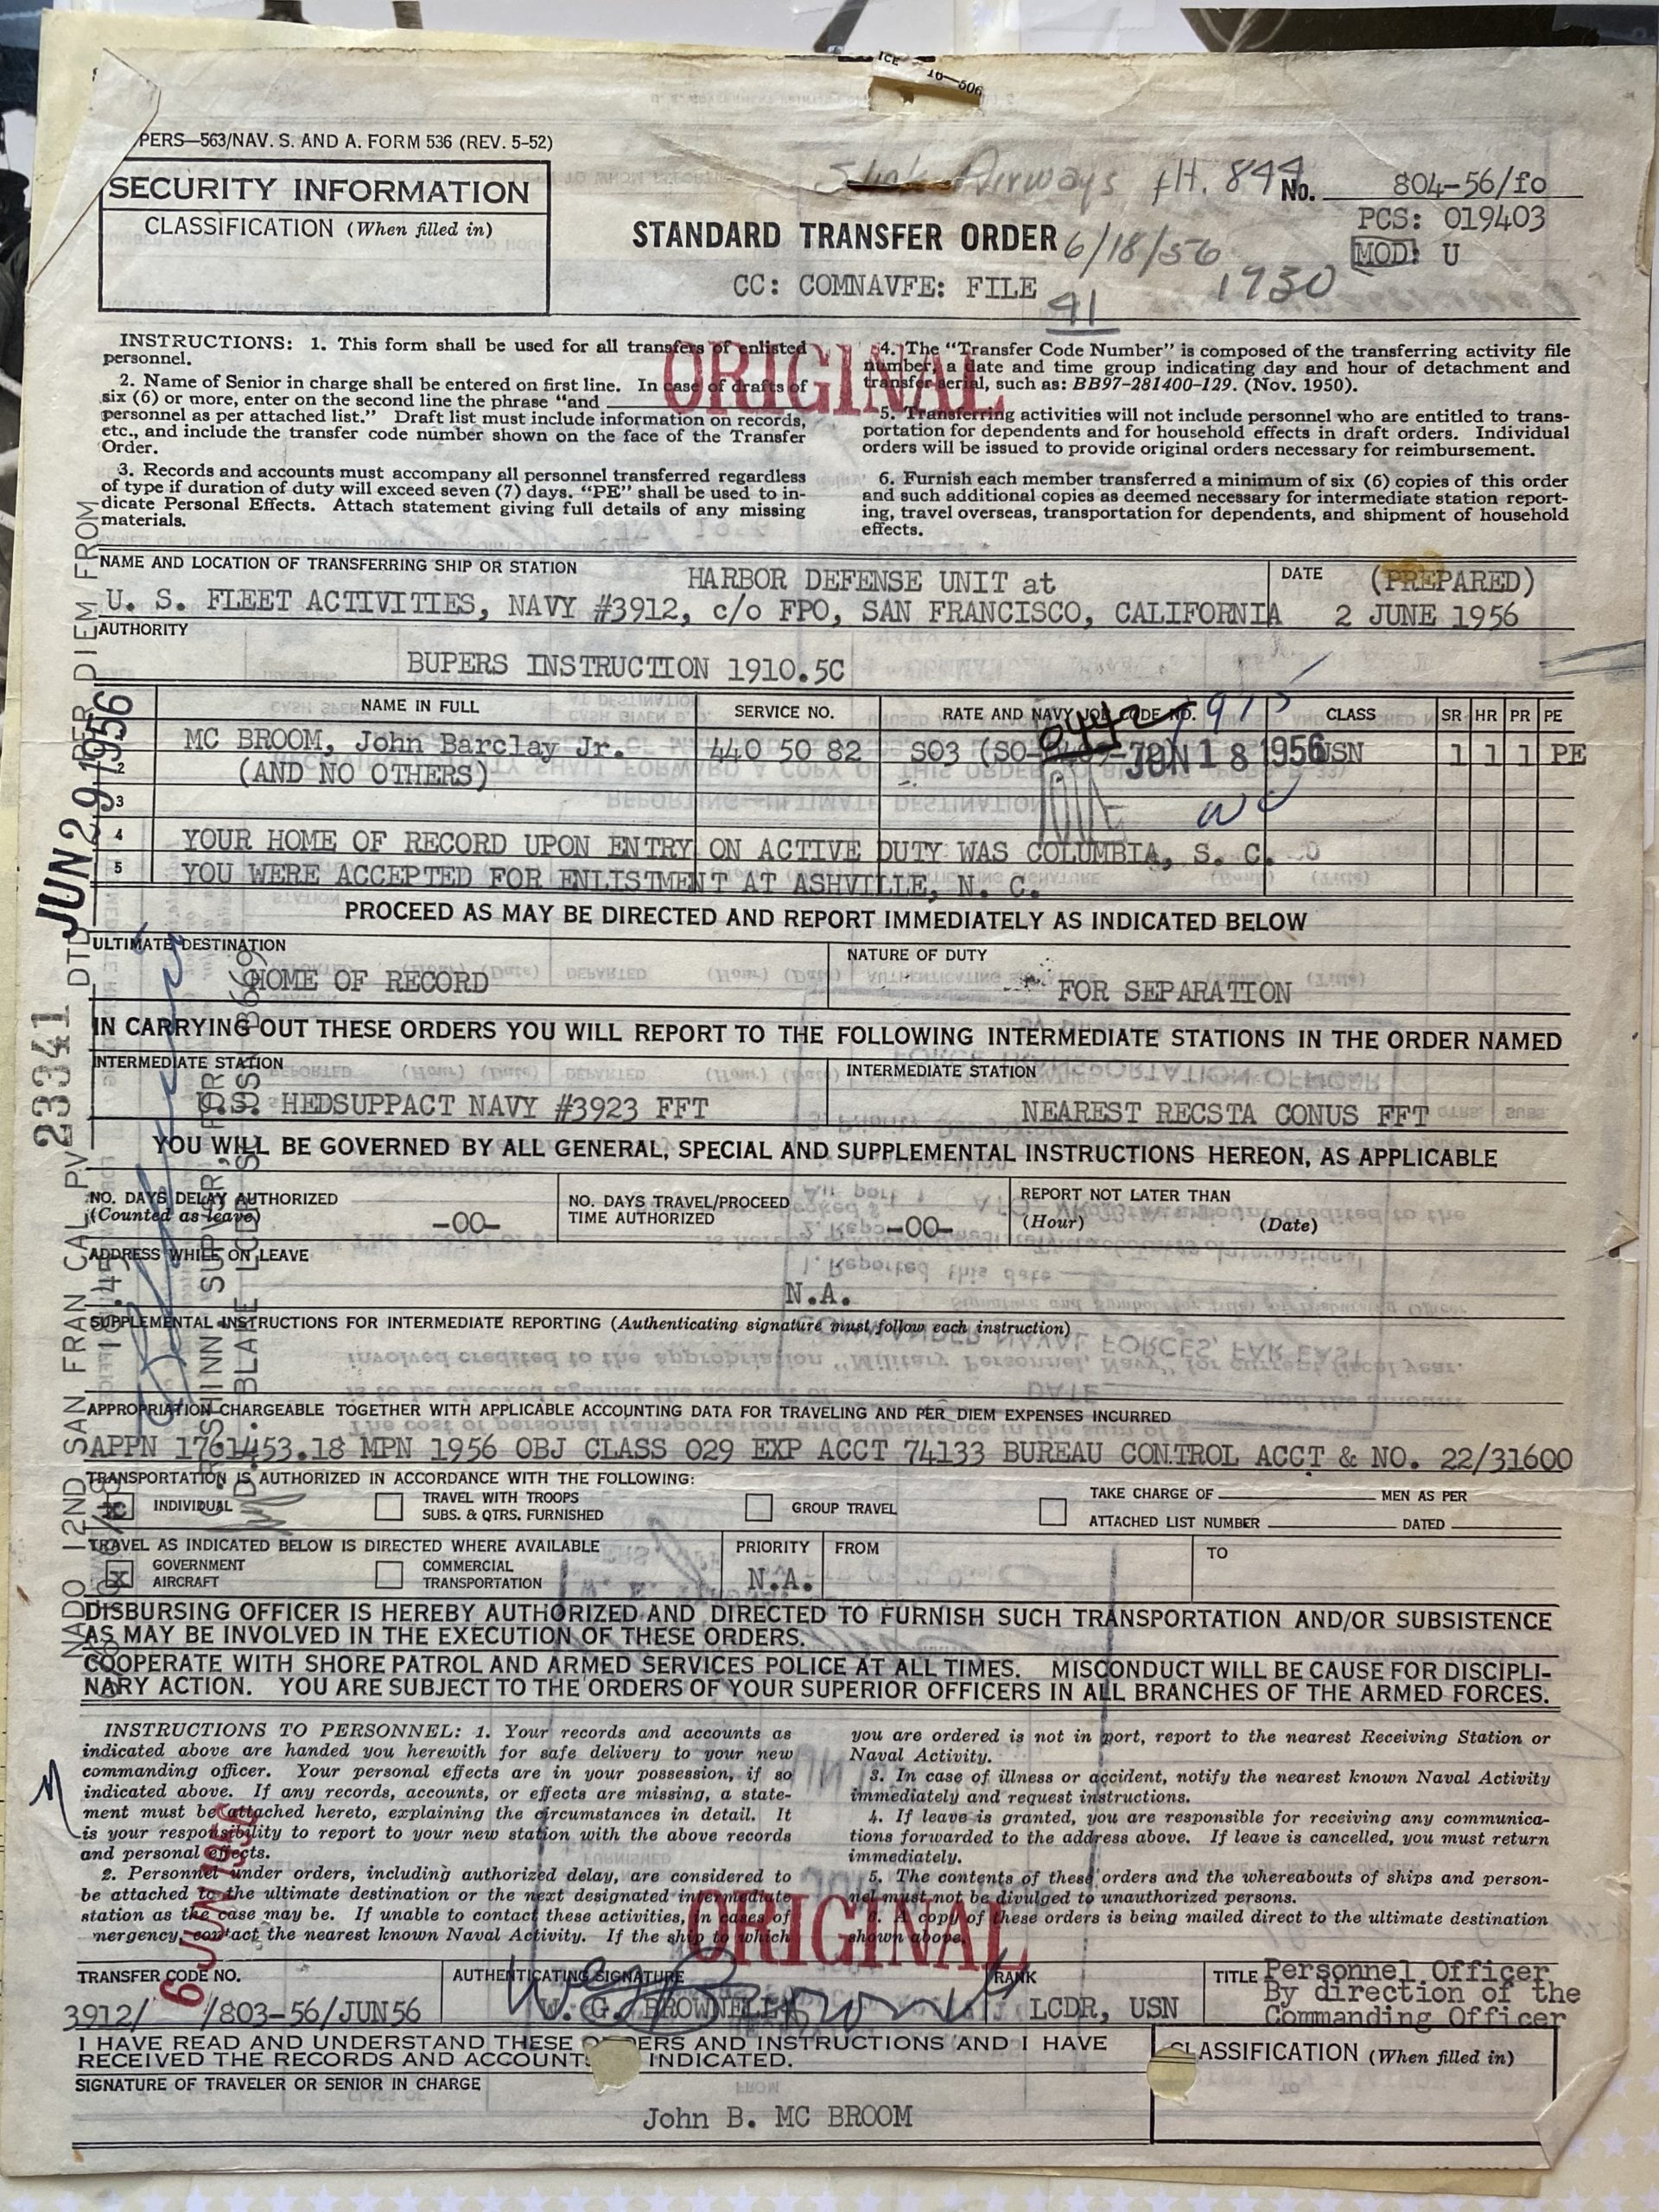 ICE 16—506
PERS—563/NAV. S. AND A. FORM 536 (REV. 5-52)
SECURITY INFORMATION
CLASSIFICATION (When filled in)
Airways fH. 844
No. 804-56/fo
PCS: 019403
MOD: U
STANDARD TRANSFER ORDER 6/18/56
CC: COMNAVFE: FILE
41
1930
ORIGINAL
INSTRUCTIONS: 1. This form shall be used for all transfers of enlisted
personnel.
2. Name of Senior in charge shall be entered on first line. In case of drafts of
six (6) or more, enter on the second line the phrase “and
personnel as per attached list.” Draft list must include information on records,
etc., and include the transfer code number shown on the face of the Transfer
Order.
3. Records and accounts must accompany all personnel transferred regardless
of type if duration of duty will exceed seven (7) days. “PE” shall be used to in-
dicate Personal Effects. Attach statement giving full details of any missing
materials.
4. The “Transfer Code Number” is composed of the transferring activity file
number, a date and time group indicating day and hour of detachment and
transfer serial, such as: BB97-281400-129. (Nov. 1950).
5. Transferring activities will not include personnel who are entitled to trans-
portation for dependents and for household effects in draft orders. Individual
orders will be issued to provide original orders necessary for reimbursement.
6. Furnish each member transferred a minimum of six (6) copies of this order
and such additional copies as deemed necessary for intermediate station report-
ing, travel overseas, transportation for dependents, and shipment of household
effects.
NAME AND LOCATION OF TRANSFERRING SHIP OR STATION
HARBOR DEFENSE UNIT at
U. S. FLEET ACTIVITIES, NAVY #3912, c/o FPO, SAN FRANCISCO, CALIFORNIA
DATE (PREPARED)
2 JUNE 1956
AUTHORITY
BUPERS INSTRUCTION 1910.5C
NAME IN FULL SERVICE NO. RATE AND NAVY JOB CODE NO. CLASS SR HR PR PE
MC BROOM, John Barclay Jr. 440 50 82 SO3 (SO- USN 1 1 1 PE
0442
1915
JUN 18 1956
2 (AND NO OTHERS)
3
4 YOUR HOME OF RECORD UPON ENTRY ON ACTIVE DUTY WAS COLUMBIA, S. C.
5 YOU WERE ACCEPTED FOR ENLISTMENT AT ASHVILLE, N. C.
PROCEED AS MAY BE DIRECTED AND REPORT IMMEDIATELY AS INDICATED BELOW
ULTIMATE DESTINATION
HOME OF RECORD
NATURE OF DUTY
FOR SEPARATION
IN CARRYING OUT THESE ORDERS YOU WILL REPORT TO THE FOLLOWING INTERMEDIATE STATIONS IN THE ORDER NAMED
INTERMEDIATE STATION
U.S. HEDSUPPACT NAVY #3923 FFT
INTERMEDIATE STATION
NEAREST RECSTA CONUS FFT
YOU WILL BE GOVERNED BY ALL GENERAL, SPECIAL AND SUPPLEMENTAL INSTRUCTIONS HEREON, AS APPLICABLE
NO. DAYS DELAY AUTHORIZED
(Counted as leave) -00-
NO. DAYS TRAVEL/PROCEED
TIME AUTHORIZED -00-
REPORT NOT LATER THAN
(Hour) (Date)
ADDRESS WHILE ON LEAVE
N.A.
SUPPLEMENTAL INSTRUCTIONS FOR INTERMEDIATE REPORTING (Authenticating signature must follow each instruction)
APPROPRIATION CHARGEABLE TOGETHER WITH APPLICABLE ACCOUNTING DATA FOR TRAVELING AND PER DIEM EXPENSES INCURRED
APPN 1761453.18 MPN 1956 OBJ CLASS 029 EXP ACCT 74133 BUREAU CONTROL ACCT & NO. 22/31600
TRANSPORTATION IS AUTHORIZED IN ACCORDANCE WITH THE FOLLOWING:
X INDIVIDUAL
TRAVEL WITH TROOPS
SUBS. & QTRS. FURNISHED
GROUP TRAVEL
TAKE CHARGE OF MEN AS PER
ATTACHED LIST NUMBER DATED
TRAVEL AS INDICATED BELOW IS DIRECTED WHERE AVAILABLE
X GOVERNMENT
AIRCRAFT
COMMERCIAL
TRANSPORTATION
PRIORITY
N.A.
FROM
TO
DISBURSING OFFICER IS HEREBY AUTHORIZED AND DIRECTED TO FURNISH SUCH TRANSPORTATION AND/OR SUBSISTENCE
AS MAY BE INVOLVED IN THE EXECUTION OF THESE ORDERS.
COOPERATE WITH SHORE PATROL AND ARMED SERVICES POLICE AT ALL TIMES. MISCONDUCT WILL BE CAUSE FOR DISCIPLI-
NARY ACTION. YOU ARE SUBJECT TO THE ORDERS OF YOUR SUPERIOR OFFICERS IN ALL BRANCHES OF THE ARMED FORCES.
INSTRUCTIONS TO PERSONNEL: 1. Your records and accounts as
indicated above are handed you herewith for safe delivery to your new
commanding officer. Your personal effects are in your possession, if so
indicated above. If any records, accounts, or effects are missing, a state-
ment must be attached hereto, explaining the circumstances in detail. It
is your responsibility to report to your new station with the above records
and personal effects.
2. Personnel under orders, including authorized delay, are considered to
be attached to the ultimate destination or the next designated intermediate
station as the case may be. If unable to contact these activities, in cases of
nergency, contact the nearest known Naval Activity. If the ship to which
you are ordered is not in port, report to the nearest Receiving Station or
Naval Activity.
3. In case of illness or accident, notify the nearest known Naval Activity
immediately and request instructions.
4. If leave is granted, you are responsible for receiving any communica-
tions forwarded to the address above. If leave is cancelled, you must return
immediately.
5. The contents of these orders and the whereabouts of ships and person-
nel must not be divulged to unauthorized persons.
6. A copy of these orders is being mailed direct to the ultimate destination
shown above.
ORIGINAL
TRANSFER CODE NO.
3912/ /803-56/JUN56
6 JUN 1956
AUTHENTICATING SIGNATURE
W. G. BROWNELL
RANK
LCDR, USN
TITLE Personnel Officer
By direction of the
Commanding Officer
I HAVE READ AND UNDERSTAND THESE ORDERS AND INSTRUCTIONS AND I HAVE
RECEIVED THE RECORDS AND ACCOUNTS INDICATED.
SIGNATURE OF TRAVELER OR SENIOR IN CHARGE
John B. MC BROOM
CLASSIFICATION (When filled in)
NADO 12ND SAN FRAN CAL PV 23341 DTD JUN 29 1956 PER DIEM FROM